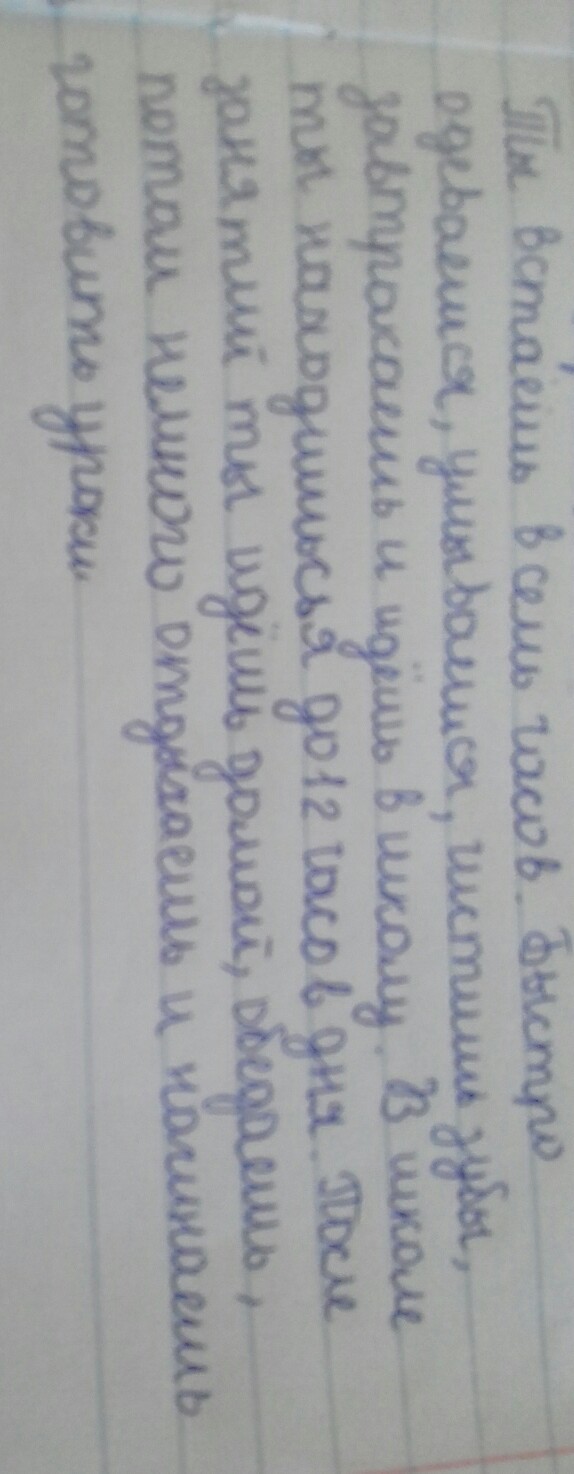 Ты встаёшь в семь часов. Быстро
одеваешся, умываешся, чистишь зубы,
завтракаешь и идёшь в школу. В школе
ты находишьсья до 12 часов дня. После
занятий ты идёшь домой, обедаешь,
потом немного отдыхаешь и начинаешь
готовить уроки.